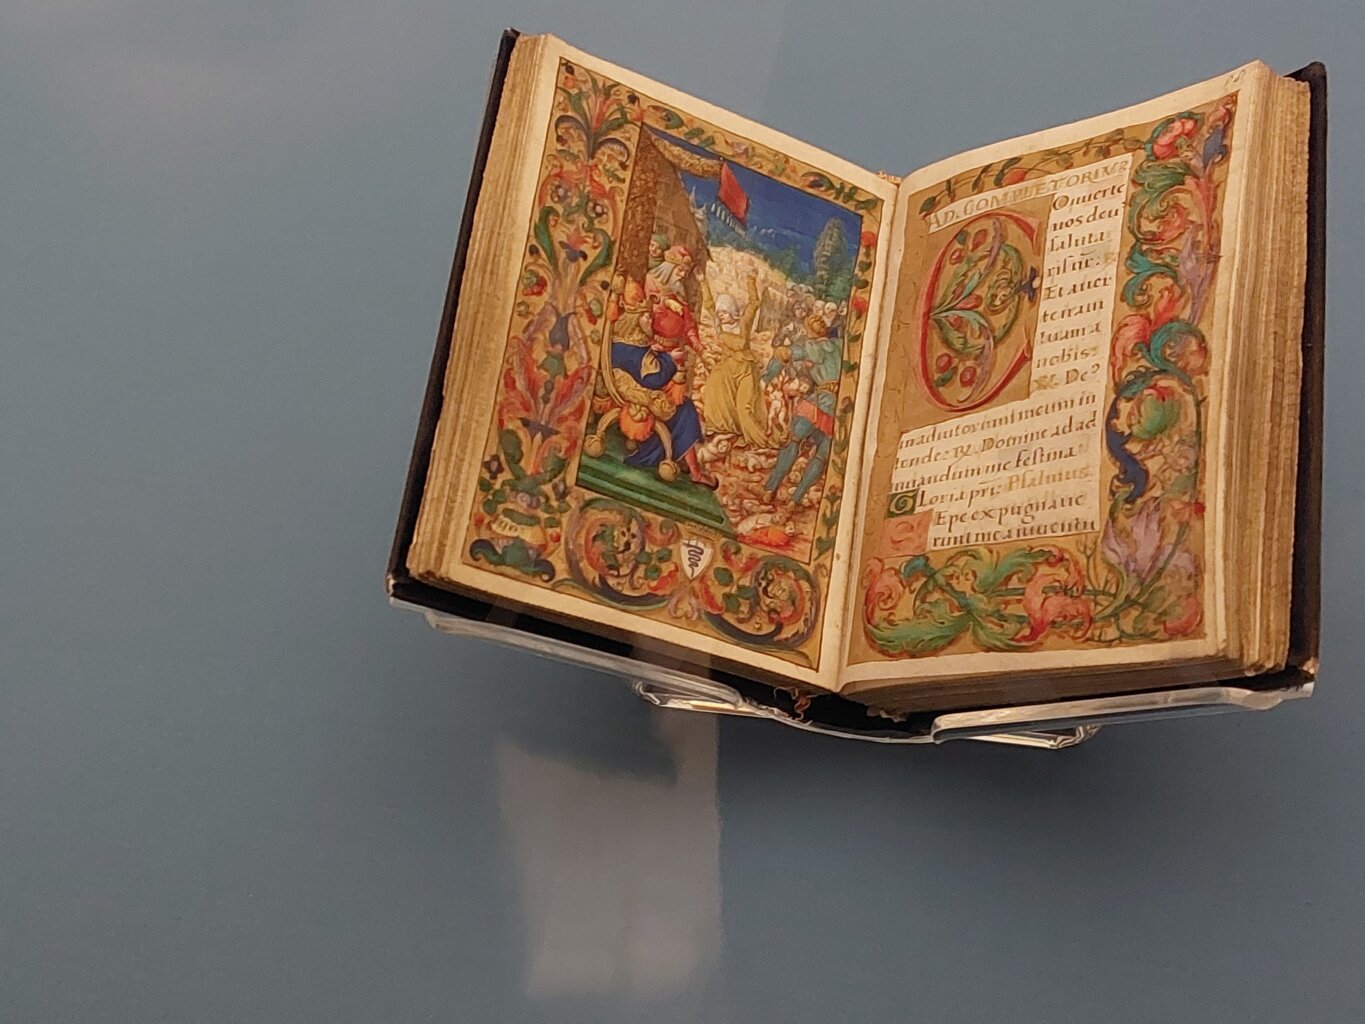 AD. COMPLETORIUM
Onuerte
nos deus
saluta
ris n̄r. R⁊
Et auer
te iram
tuam a
nobis.
V⁊. De⁹
in adiutorium meum in
tende. R⁊. Domine ad ad
iuuandum me festina.
Gloria pr̄i. Psalmus.
Sepe expugnaue
runt me a iuuentu